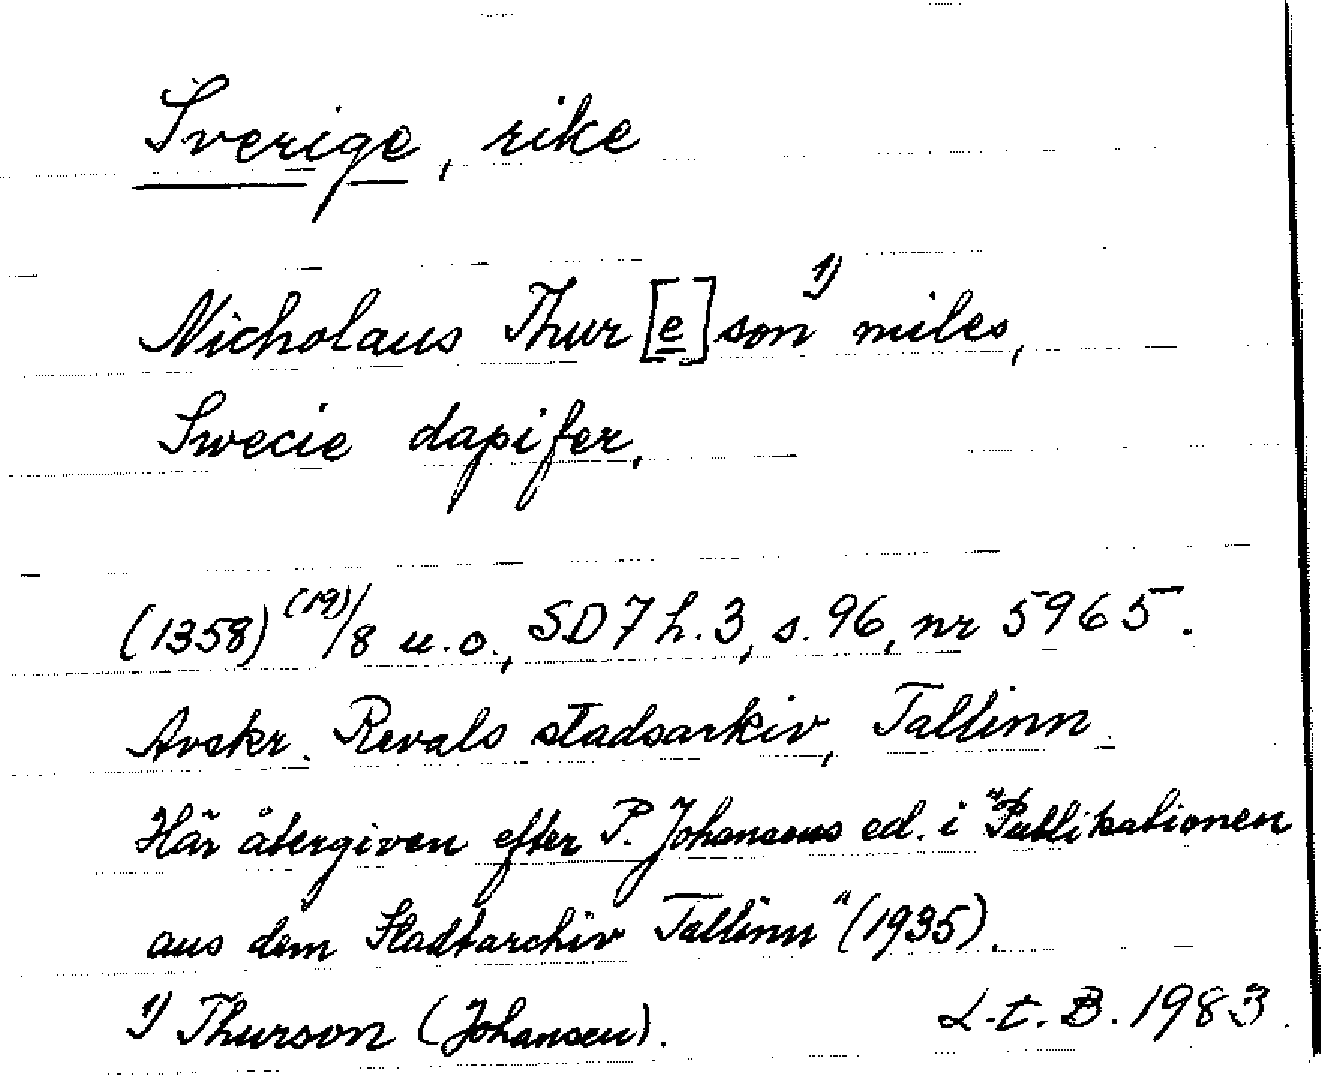 Sverige, rike
Nicholaus Thur[e]son 1) miles,
Swecie dapifer,
(1358) (19)/8 u.o., SD 7 h. 3, s. 96, nr 5965.
Avskr. Revals stadsarkiv, Tallinn.
Här återgiven efter P. Johansens ed. i "Publikationen
aus dem Stadtarchiv Tallinn" (1935).
1) Thurson (Johansen).
L.t.B. 1983.